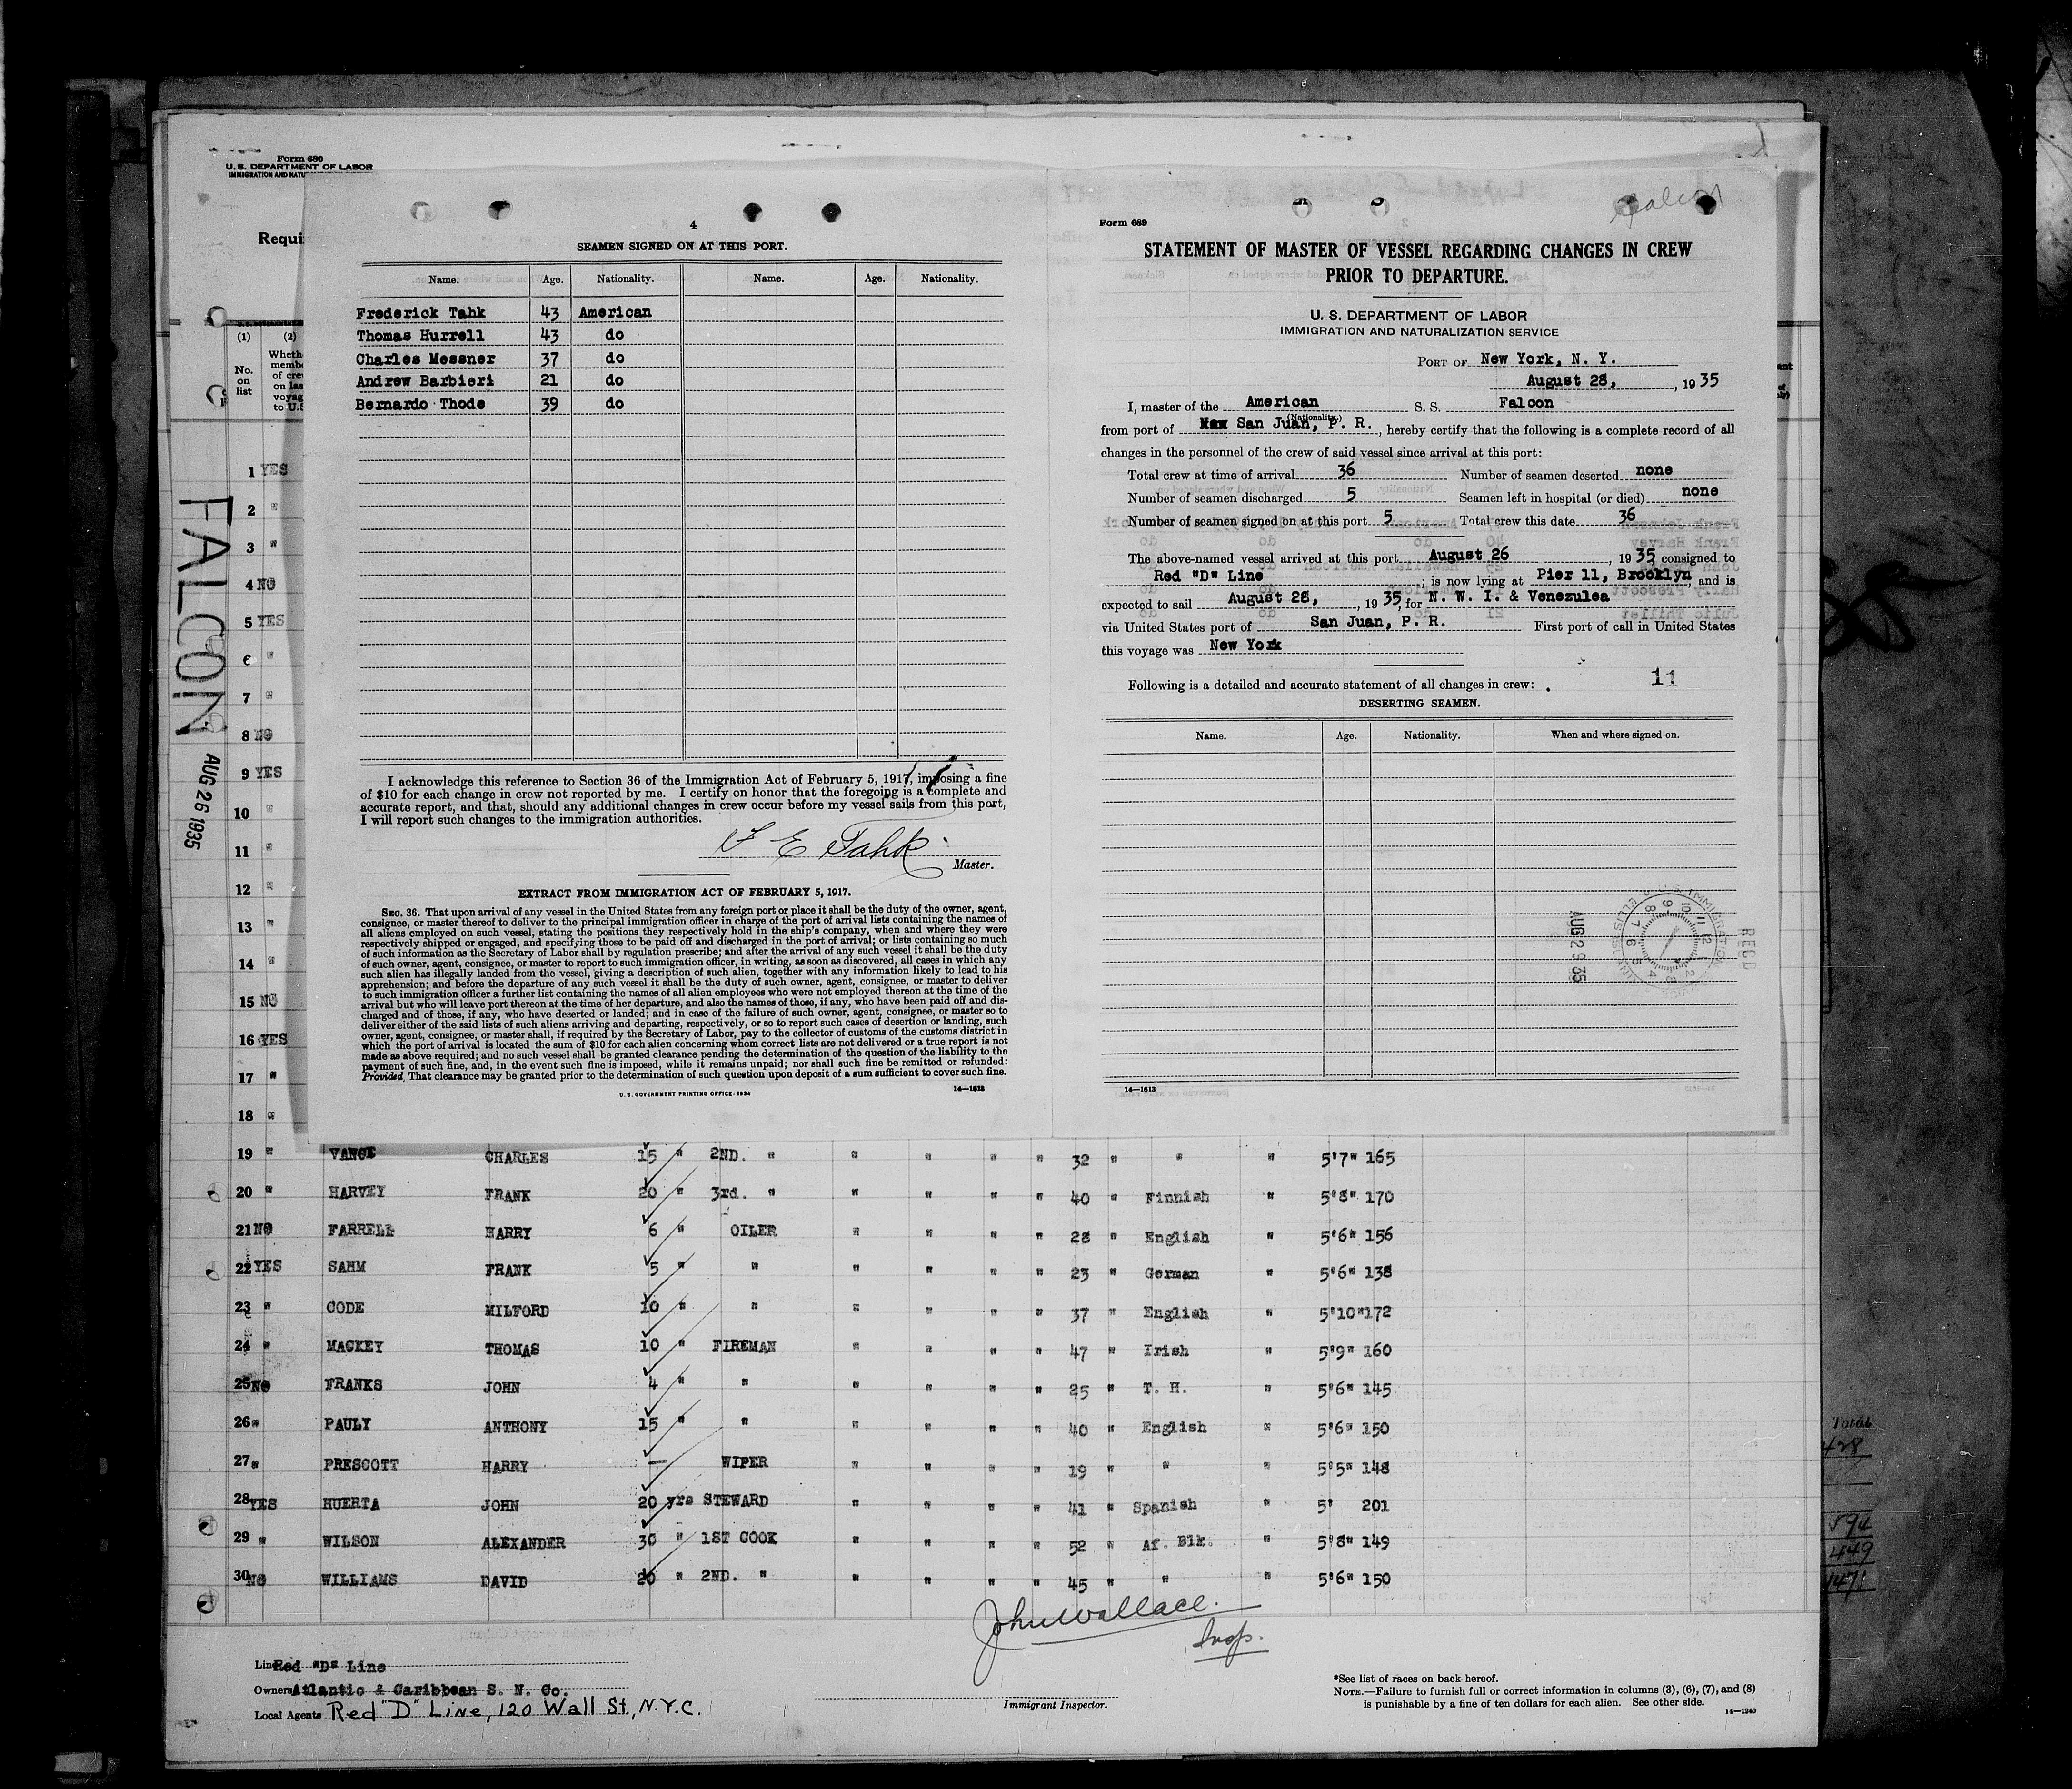 Form 680
U. S. DEPARTMENT OF LABOR
Requi
FALCON
AUG 26 1935
(1) (2)
No. on list
1 YES
2 "
3 "
4 NO
5 YES
6 "
7 "
8 NO
9 YES
10 "
11 "
12 "
13 "
14 "
15 NO
16 YES
17 "
18 "
4
SEAMEN SIGNED ON AT THIS PORT.
Name. Age. Nationality. Name. Age. Nationality.
Frederick Tahk 43 American
Thomas Hurrell 43 do
Charles Messner 37 do
Andrew Barbieri 21 do
Bernardo Thode 39 do
I acknowledge this reference to Section 36 of the Immigration Act of February 5, 1917, imposing a fine
of $10 for each change in crew not reported by me. I certify on honor that the foregoing is a complete and
accurate report, and that, should any additional changes in crew occur before my vessel sails from this port,
I will report such changes to the immigration authorities.
F E Tahk
Master.
EXTRACT FROM IMMIGRATION ACT OF FEBRUARY 5, 1917.
SEC. 36. That upon arrival of any vessel in the United States from any foreign port or place it shall be the duty of the owner, agent,
consignee, or master thereof to deliver to the principal immigration officer in charge of the port of arrival lists containing the names of
all aliens employed on such vessel, stating the positions they respectively hold in the ship's company, when and where they were
respectively shipped or engaged, and specifying those to be paid off and discharged in the port of arrival; or lists containing so much
of such information as the Secretary of Labor shall by regulation prescribe; and after the arrival of any such vessel it shall be the duty
of such owner, agent, consignee, or master to report to such immigration officer, in writing, as soon as discovered, all cases in which any
such alien has illegally landed from the vessel, giving a description of such alien, together with any information likely to lead to his
apprehension; and before the departure of any such vessel it shall be the duty of such owner, agent, consignee, or master to deliver
to such immigration officer a further list containing the names of all alien employees who were not employed thereon at the time of the
arrival but who will leave port thereon at the time of her departure, and also the names of those, if any, who have been paid off and dis-
charged and of those, if any, who have deserted or landed; and in case of the failure of such owner, agent, consignee, or master so to
deliver either of the said lists of such aliens arriving and departing, respectively, or so to report such cases of desertion or landing, such
owner, agent, consignee, or master shall, if required by the Secretary of Labor, pay to the collector of customs of the customs district in
which the port of arrival is located the sum of $10 for each alien concerning whom correct lists are not delivered or a true report is not
made as above required; and no such vessel shall be granted clearance pending the determination of the question of the liability to the
payment of such fine, and, in the event such fine is imposed, while it remains unpaid; nor shall such fine be remitted or refunded:
Provided, That clearance may be granted prior to the determination of such question upon deposit of a sum sufficient to cover such fine.
U. S. GOVERNMENT PRINTING OFFICE: 1934 14—1613
Falcon
Form 689
STATEMENT OF MASTER OF VESSEL REGARDING CHANGES IN CREW
PRIOR TO DEPARTURE.
U. S. DEPARTMENT OF LABOR
IMMIGRATION AND NATURALIZATION SERVICE
PORT OF New York, N. Y.
August 28, , 1935
I, master of the American S. S. Falcon
(Nationality.)
from port of San Juan, P. R. , hereby certify that the following is a complete record of all
changes in the personnel of the crew of said vessel since arrival at this port:
Total crew at time of arrival 36 Number of seamen deserted none
Number of seamen discharged 5 Seamen left in hospital (or died) none
Number of seamen signed on at this port 5 Total crew this date 36
The above-named vessel arrived at this port August 26 , 1935 consigned to
Red "D" Line ; is now lying at Pier 11, Brooklyn, and is
expected to sail August 28, , 1935, for N. W. I. & Venezulea
via United States port of San Juan, P. R. First port of call in United States
this voyage was New York
Following is a detailed and accurate statement of all changes in crew: 11
DESERTING SEAMEN.
Name. Age. Nationality. When and where signed on.
REC'D
AUG 29 35
14—1613
19 " VANCE CHARLES 15 " 2ND. " " " " " 32 " " " 5'7" 165
20 " HARVEY FRANK 20 " 3rd. " " " " " 40 " Finnish " 5'8" 170
21 NO FARRELL HARRY 6 " OILER " " " " 28 " English " 5'6" 156
22 YES SAHM FRANK 5 " " " " " " 23 " German " 5'6" 138
23 " CODE MILFORD 10 " " " " " " 37 " English " 5'10" 172
24 " MACKEY THOMAS 10 " FIREMAN " " " " 47 " Irish " 5'9" 160
25 NO FRANKS JOHN 4 " " " " " " 25 " T. H. " 5'6" 145
26 " PAULY ANTHONY 15 " " " " " " 40 " English " 5'6" 150
27 " PRESCOTT HARRY — WIPER " " " " 19 " " " 5'5" 148
28 YES HUERTA JOHN 20 yrs STEWARD " " " " 41 " Spanish " 5' 201
29 " WILSON ALEXANDER 30 " 1ST COOK " " " " 52 " Af. Blk. " 5'8" 149
30 NO WILLIAMS DAVID 20 " 2ND. " " " " " 45 " " " 5'6" 150
John Wallace.
Insp.
Immigrant Inspector.
Line Red "D" Line
Owners Atlantic & Caribbean S. N. Co.
Local Agents Red "D" Line, 120 Wall St, N.Y.C.
*See list of races on back hereof.
NOTE.—Failure to furnish full or correct information in columns (3), (6), (7), and (8)
is punishable by a fine of ten dollars for each alien. See other side.
14—1240
Total
428
594
449
1471